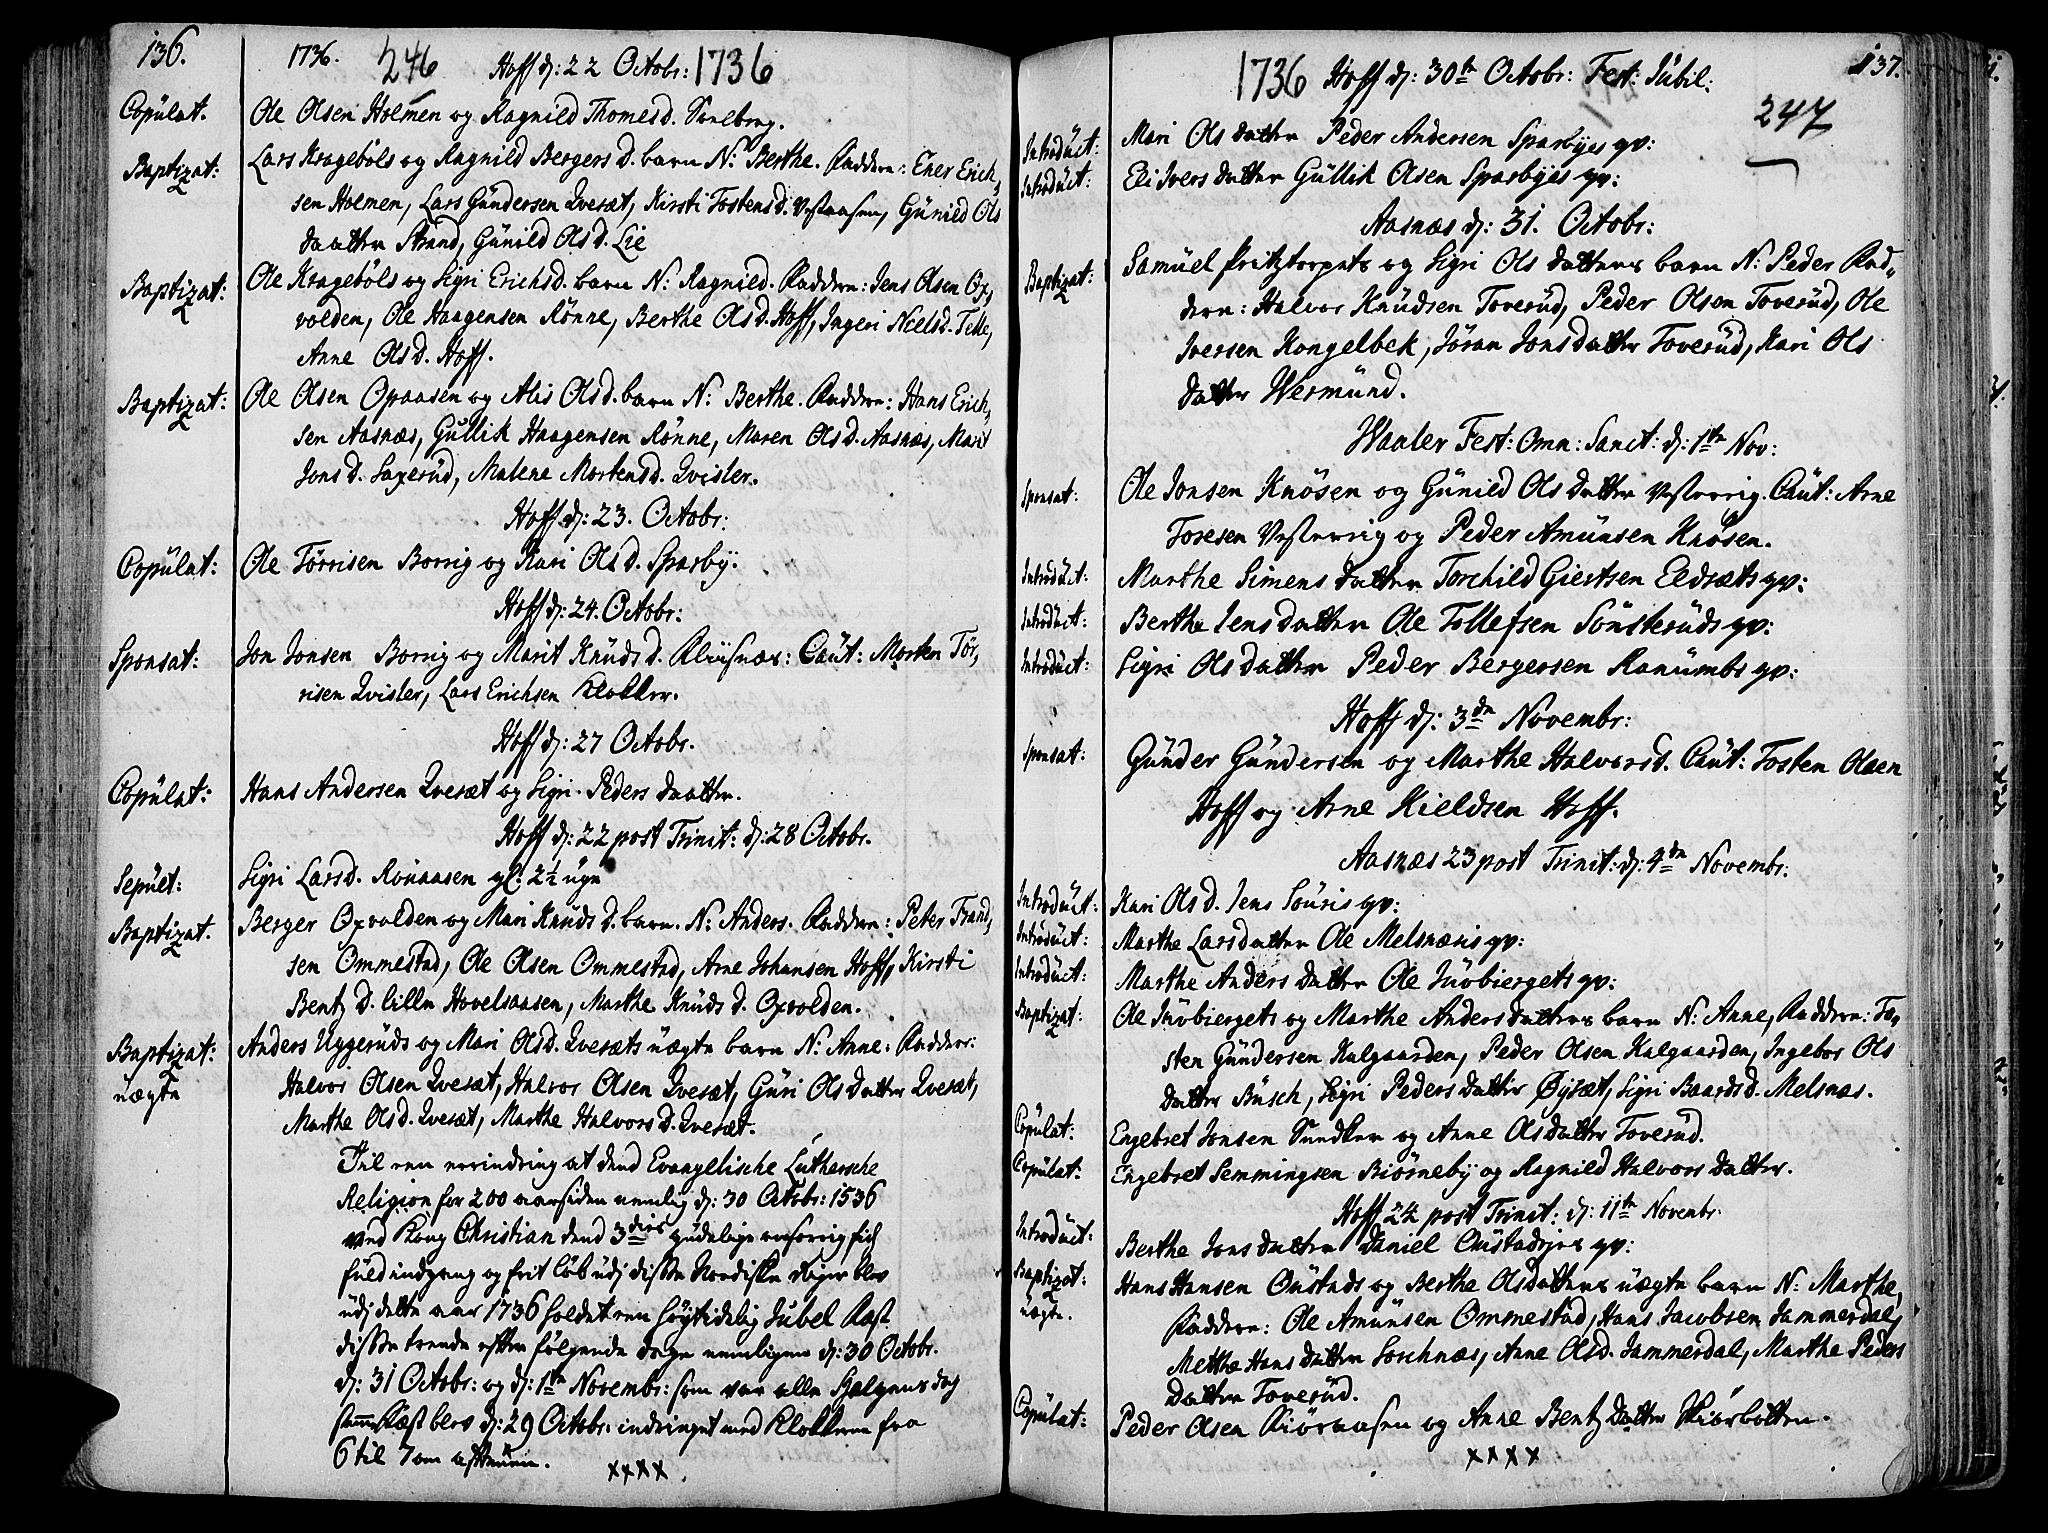 136.
1736. 246 Hoff d: 22 Octobr: 1736
Copulat. Ole Olsen Holmen og Ragnild Thomesd.
Baptizat: Lars Kragebøls og Ragnild Bergers D. barn N: Berthe. Faddere: Ener Erich,
sen Holmen, Lars Gündersen Qvesæt, Kirsti Tostensd. Vestaasen, Günild Ols
Daatter Strand, Günild Ols D. Lie
Baptizat: Ole Kragebøls og Sigri Erichsd. barn N: Ragnild. Faddere: Jens Olsen Ox,
volden, Ole Haagensen Rønne, Berthe Ols D. Hoff, Ingeri Nielsd. Telle,
Anne Ols D. Hoff.
Baptizat: Ole Olsen Opaasen og Alis Olsd. barn N: Berthe. Faddere: Hans Erich,
sen Aasnæs, Güllik Haagensen Rønne, Maren Ols D. Aasnæs, Marit
Jons D. Saxerüd, Malene Mortensd. Qvisler.
Hoff d: 23. Octobr:
Copulat: Ole Törrisen Borrig og Kari Ols D. Sparby.
Hoff d: 24. Octobr:
Sponsat: Jon Jonsen Borrig og Marit Knüds D. : Caüt: Morten Tör,
risen Qvisler, Lars Erichsen Klokker.
Hoff d: 27 Octobr.
Copulat: Hans Andersen Qvesæt og Sigri Peders Daatter.
Hoff d: 22 post Trinit: d: 28 Octobr.
Sepült: Sigri Larsd. Rönaasen gl: 2½ uge
Baptizat. Berger Oxvolden og Mari Knüds D. barn. N: Anders. Faddere: Peter Trand,
sen Ommestad, Ole Olsen Ommestad, Arne Johansen Hoff, Kirsti
Bentz D. lille Hovelsaasen, Marthe Knüds D. Oxvolden.
Baptizat: Anders Uggerüds og Mari Ols D. Qvesæts uægte barn N: Anne. Faddere:
uægte Halvor Olsen Qvesæt, Halvor Olsen Qvesæt, Güri Ols Datter Qvesæt,
Marthe Ols D. Qvesæt, Marthe Halvors D. Qvesæt.
Til een erindring at dend Evangelische Lutherske
Religion for 200 aar siden nemlig d: 30 Octobr: 1536
ved Kong Christian dend 3dies gudelige fich
fuld indgang og frit løb udj disse Nordiske Riger blev
udj dette aar 1736 holdet een høytidelig Jubel Fæst
disse trende efter følgende dage nemligen d: 30 Octobr.
d: 31 Octobr: og d: 1te Novembr: som var alle Helgens dag
samme Fæst blev d: 29 Octobr. indringet med Klokkerne fra
6 til 7 om aftenen. xxxx.
137.
1736 Hoff d: 30te Octobr: Fest: Jubil:
247
Introduct: Mari Ols Datter Peder Andersen Sparbyes qv:
Introduct: Eli Ivers Datter Güllik Olsen Sparbyes qv:
Aasnæs d: 31. Octobr:
Baptizat: Samüel Fritztorpets og Sigri Ols Datters barn N: Peder Fad,
dere: Halvor Knüdsen Toverüd, Peder Olsen Toverüd, Ole
Iversen Kongelbek, Jöran Jons Datter Toverüd, Kari Ols
Datter Wermünd.
Waaler Fest: Omn: Sanct: d: 1te Nov:
Sponsat: Ole Jonsen Knösen og Günild Ols Datter Vesterrig. Caüt: Arne
Toresen Vesterrig og Peder Amünsen Knösen.
Introduct: Marthe Simens Datter Torchild Giertsen Eldsæts qv:
Introduct: Berthe Jens Datter Ole Tollefsen Sönsterüds qv:
Introduct: Sigri Ols Datter Peder Bergersen Ranumbs qv:
Hoff d: 3de Novembr:
Sponsat: Günder Gündersen og Marthe Halvorsd. Caüt: Tosten Olsen
Hoff og Arne Kieldsen Hoff.
Aasnæs 23 post Trinit: d: 4de Novembr:
Introduct: Kari Ols D. Jens Souris qv:
Introduct: Marthe Larsdatter Ole Melsnæsis qv:
Introduct: Marthe Anders Datter Ole Juvbiergets qv:
Baptizat: Ole Juvbiergets og Marthe Anders Datters barn N: Anne, Faddere: To,
sten Gündersen Kalgaarden, Peder Olsen Kalgaarden, Ingebor Ols
Datter Büsch, Sigri Peders Datter Öysæt, Sigri Baards D. Melsnæs.
Copulat: Engebret Jonsen Sundker og Anne Olsdatter Toverüd.
Copulat: Engebret Semmingsen Biörneby og Ragnild Halvors Datter.
Hoff 24 post Trinit: d: 11te Novembr.
Introduct: Berthe Jons Datter Daniel qv:
Baptizat: Hans Hansen Oustads og Berthe Olsdatters uægte barn N: Marthe,
uægte. Faddere: Ole Amünsen Ommestad, Hans Jacobsen Jammerdal,
Metthe Hans Datter Sorchnæs, Anne Olsd. Jammerdal, Marthe Peders
Datter Toverüd.
Copulat: Peder Olsen og Anne Bentz Datter Kiörbolten.
xxxx